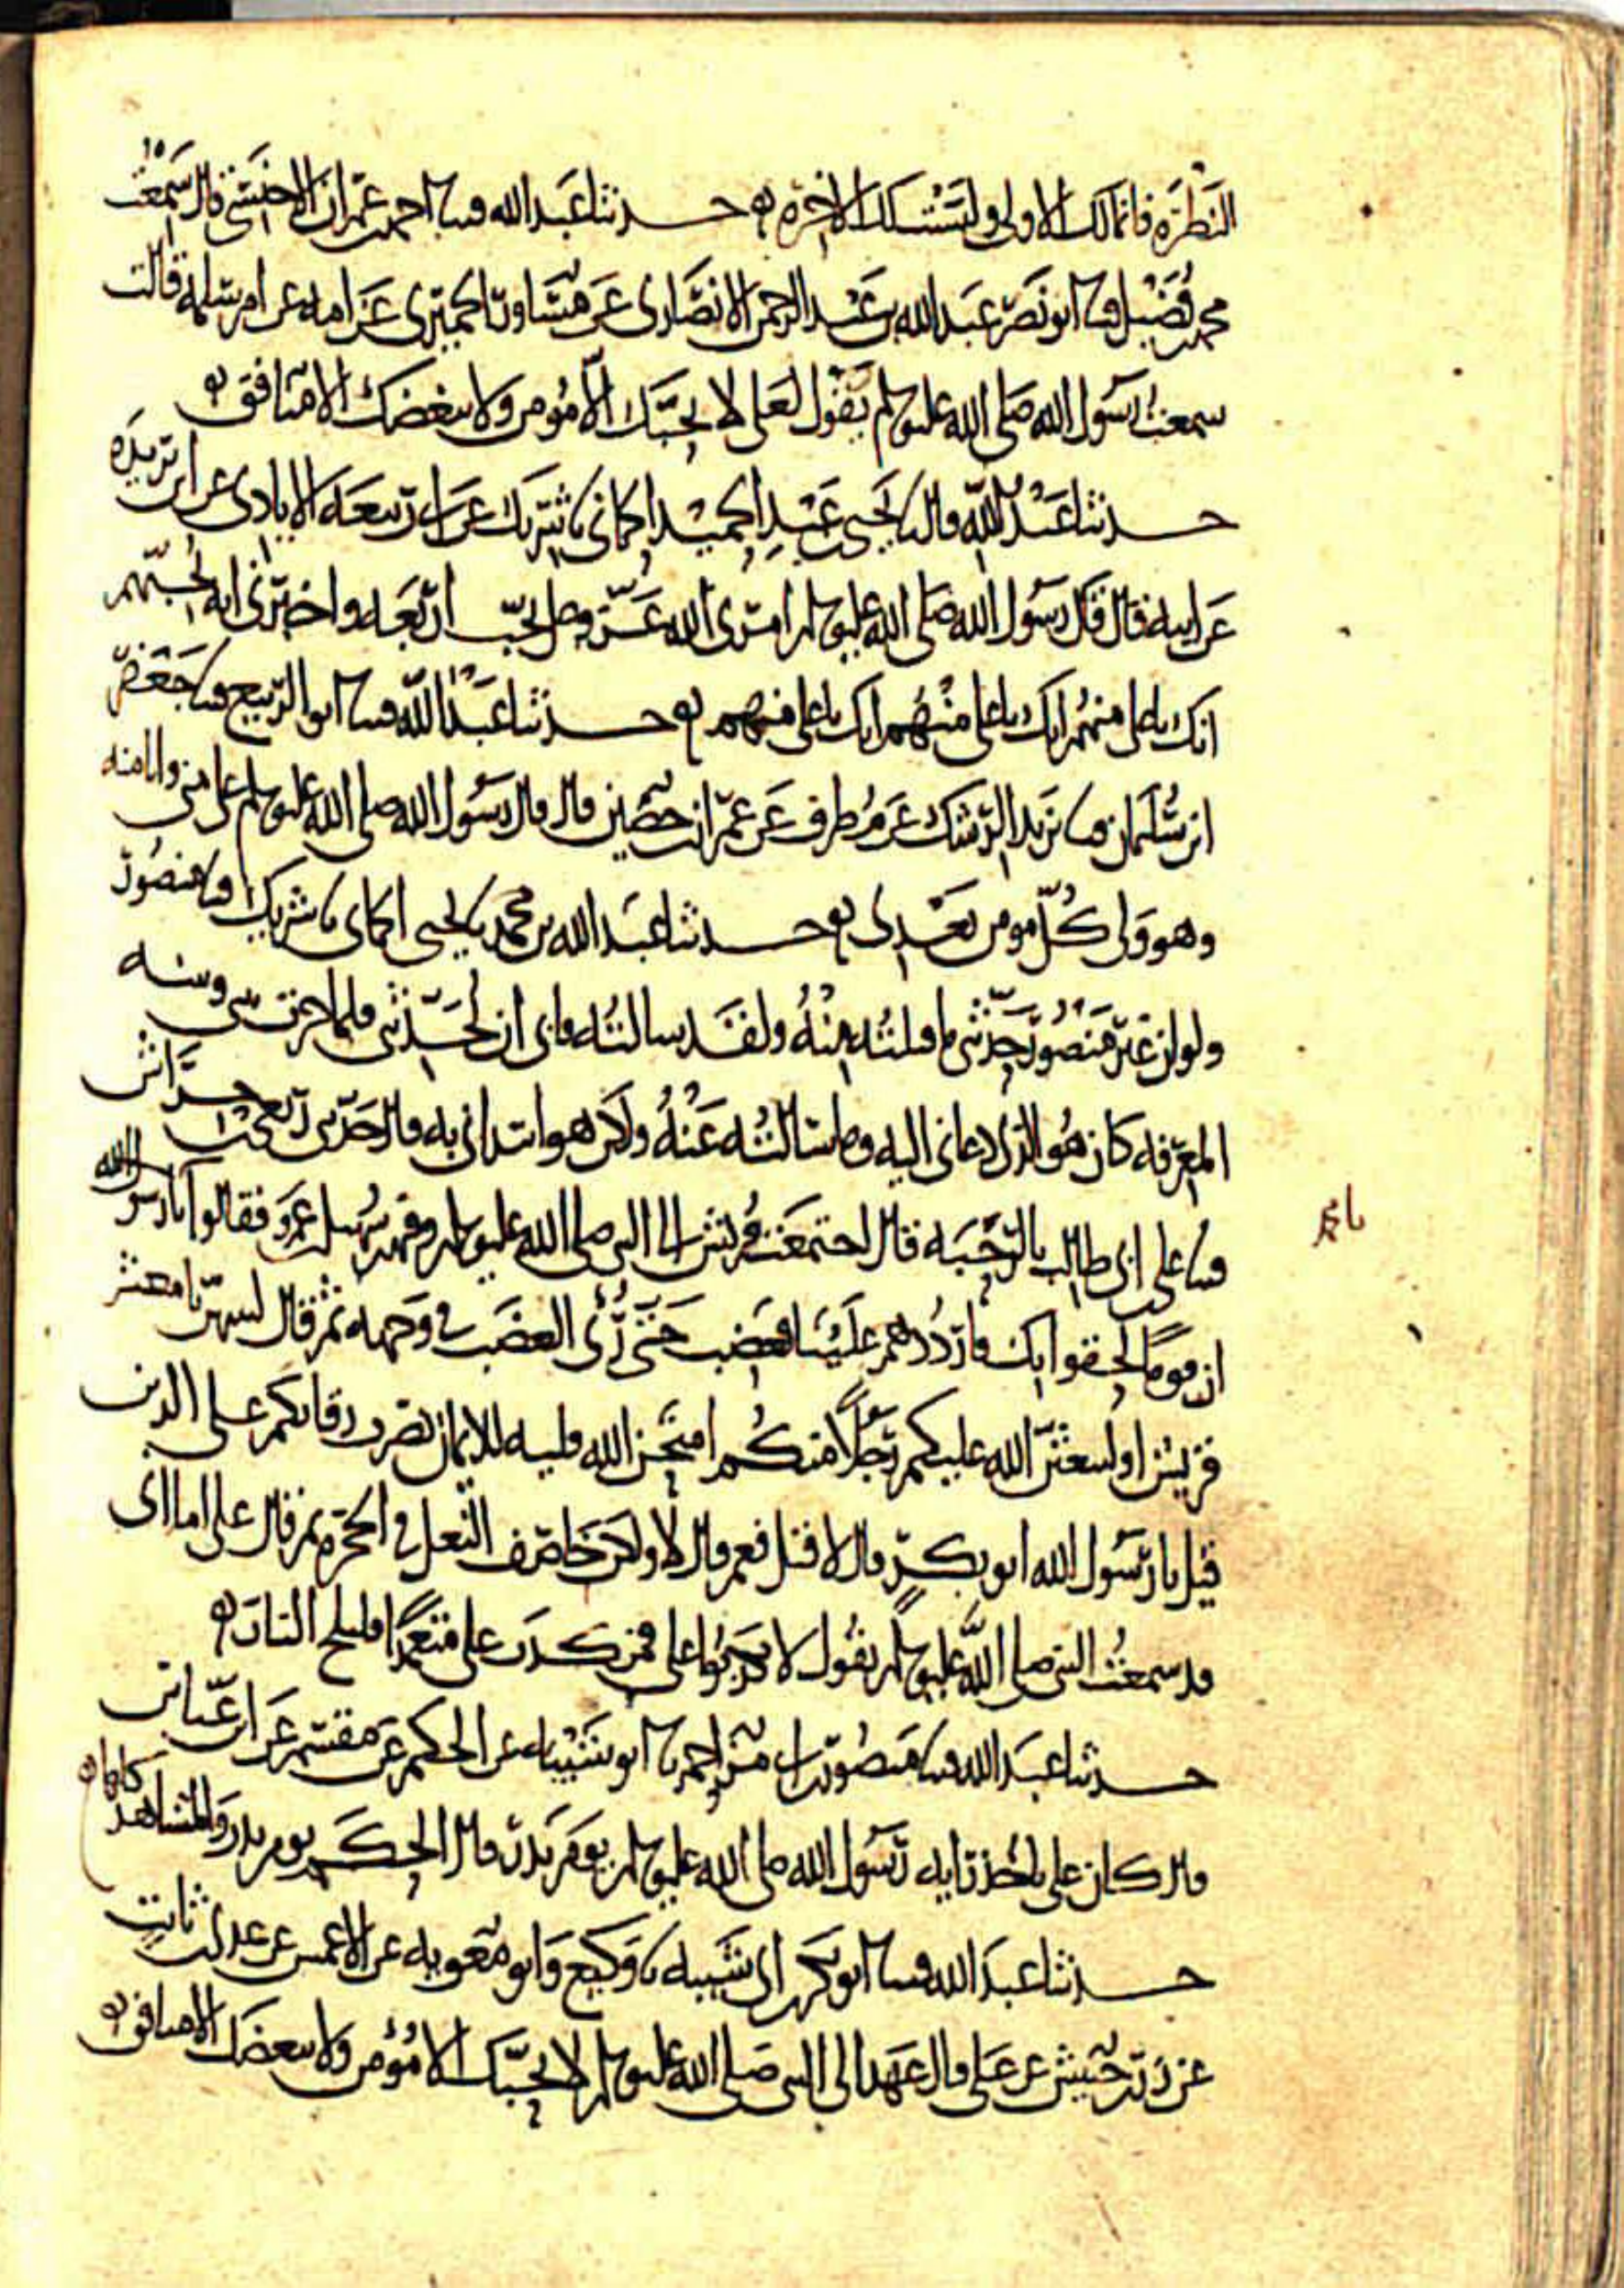 النظرة فانما لك الاولى وليست لك الاخرة حدثنا عبد الله قثنا احمد بن عمران الاخنسي قال سمعت
محمد بن فضيل قثنا ابو نصر عبد الله بن عبد الرحمن الانصاري عن مساور الحميري عن امه عن ام سلمة قالت
سمعت رسول الله صلى الله عليه وسلم يقول لعلي لا يحبك الا مؤمن ولا يبغضك الا منافق
حدثنا عبد الله قال نا يحيى بن عبد الحميد الحماني نا شريك عن ابي ربيعة الايادي عن ابن بريدة
عن ابيه قال قال رسول الله صلى الله عليه وسلم امرني الله عز وجل بحب اربعة واخبرني انه يحبهم
انك يا علي منهم انك يا علي منهم انك يا علي منهم حدثنا عبد الله قثنا ابو الربيع قثنا جعفر
ابن سليمان قثنا يزيد الرشك عن مطرف عن عمران بن حصين قال قال رسول الله صلى الله عليه وسلم علي مني وانا منه
وهو ولي كل مومن بعدي حدثنا عبد الله بن محمد نا يحيى الحماني نا شريك قثنا منصور
ولو ان غير منصور حدثني ما قبلته منه ولقد سالته فابى ان يحدثني فلما جرت بيني وبينه
المعرفة كان هو الذي دعاني اليه وما سالته عنه ولكن هو ابتداني به قال حدثني ربعي بن حراش
قثنا علي بن ابي طالب بالرحبة قال اجتمعت قريش الى النبي صلى الله عليه وسلم وفيهم سهيل بن عمرو فقالوا يا رسول الله
ان قوما لحقوا بك فارددهم علينا فغضب حتى رئي الغضب في وجهه ثم قال لتنتهن يا معشر
قريش او ليبعثن الله عليكم رجلا منكم امتحن الله قلبه للايمان يضرب رقابكم على الدين
قيل يا رسول الله ابو بكر قال لا قيل فعمر قال لا ولكن خاصف النعل في الحجرة ثم قال علي اما اني
قد سمعت النبي صلى الله عليه وسلم يقول لا تكذبوا علي فمن كذب علي متعمدا فليلج النار
حدثنا عبد الله قثنا منصور بن ابي مزاحم نا ابو شيبة عن الحكم عن مقسم عن ابن عباس
قال كان علي ياخذ راية رسول الله صلى الله عليه وسلم يوم بدر قال الحكم يوم بدر والمشاهد كلها
حدثنا عبد الله قثنا ابو بكر بن ابي شيبة نا وكيع وابو معوية عن الاعمش عن عدي بن ثابت
عن زر بن حبيش عن علي قال عهد الي النبي صلى الله عليه وسلم لا يحبك الا مؤمن ولا يبغضك الا منافق